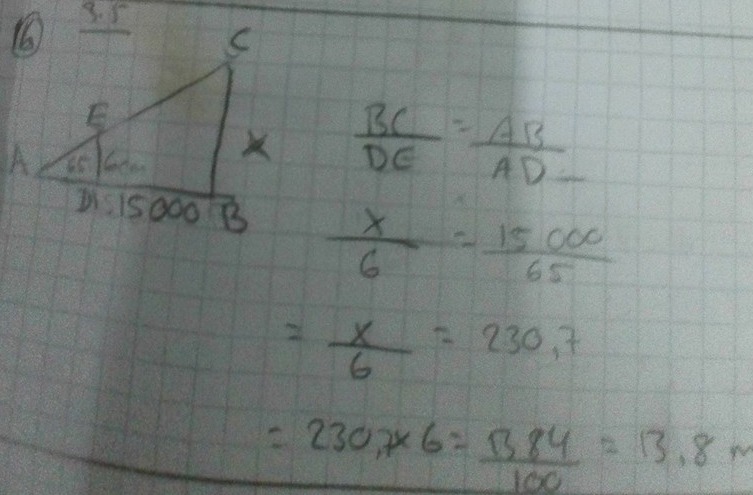 16 3.5
C
E
A 65 6mm x
D 15000 B
BC/DE = AB/AD
x/6 = 15 000/65
= x/6 = 230,7
= 230,7x6 = 1384/100 = 13,8 m